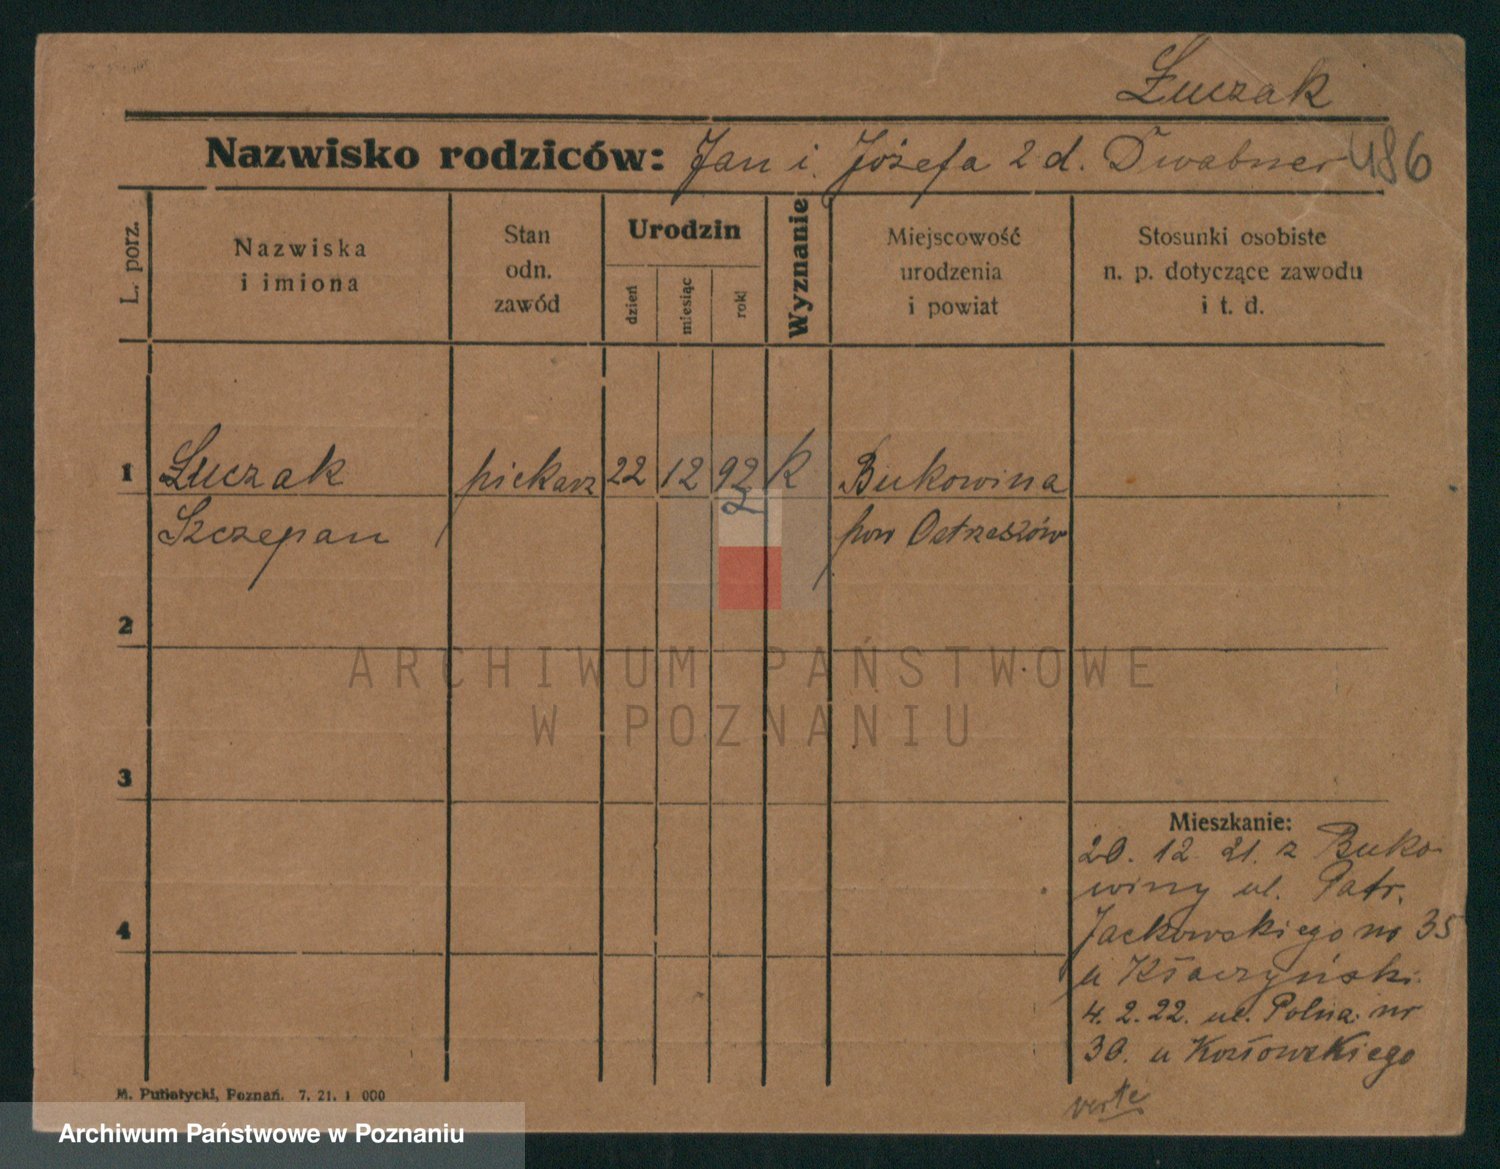 Łuczak
Nazwisko rodziców: Jan i Józefa z d. 486
L. porz.
Nazwiska
i imiona
Stan
odn.
zawód
Urodzin
dzień
miesiąc
rok
Wyznanie
Miejscowość
urodzenia
i powiat
Stosunki osobiste
n. p. dotyczące zawodu
i t. d.
1 Łuczak piekarz 22 12 92 k Bukowina
2
Szczepan pow Ostrzeszów
2
ARCHIWUM PAŃSTWOWE
W POZNANIU
3
Mieszkanie:
20. 12. 21. z Buko-
winy ul. Patr.
4
Jackowskiego no 35
u
4. 2. 22. ul. Polna nr
30. u Kozłowskiego
verte
M. Putiatycki, Poznań. 7. 21. 1 000
Archiwum Państwowe w Poznaniu